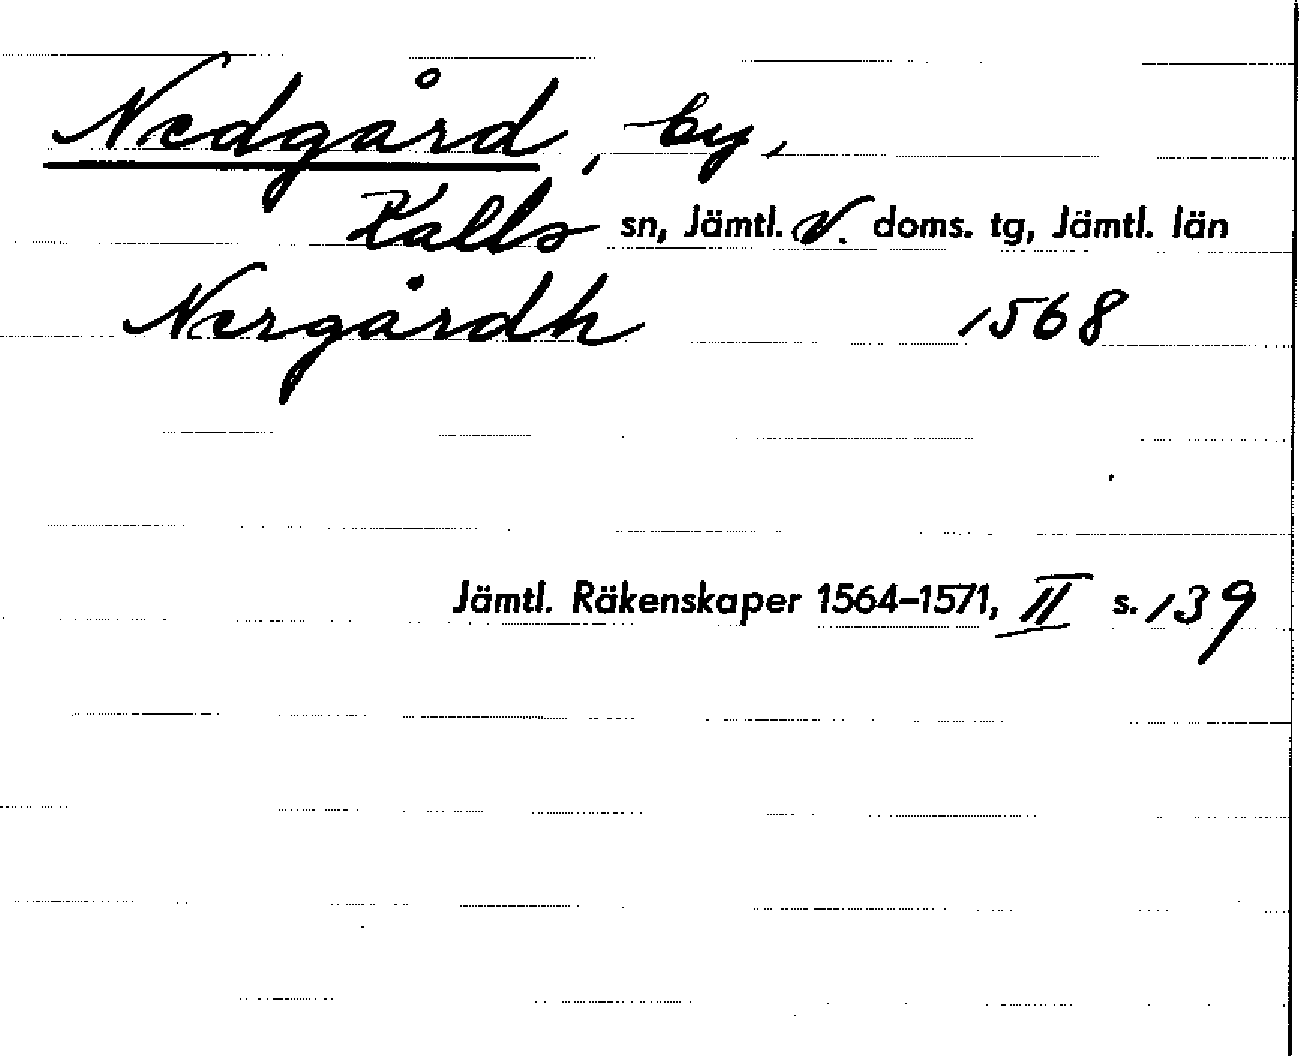 Nedgård, by,
Kalls sn, Jämtl. V. doms. tg, Jämtl. län
Nergårdh 1568
Jämtl. Räkenskaper 1564-1571, II s. 139